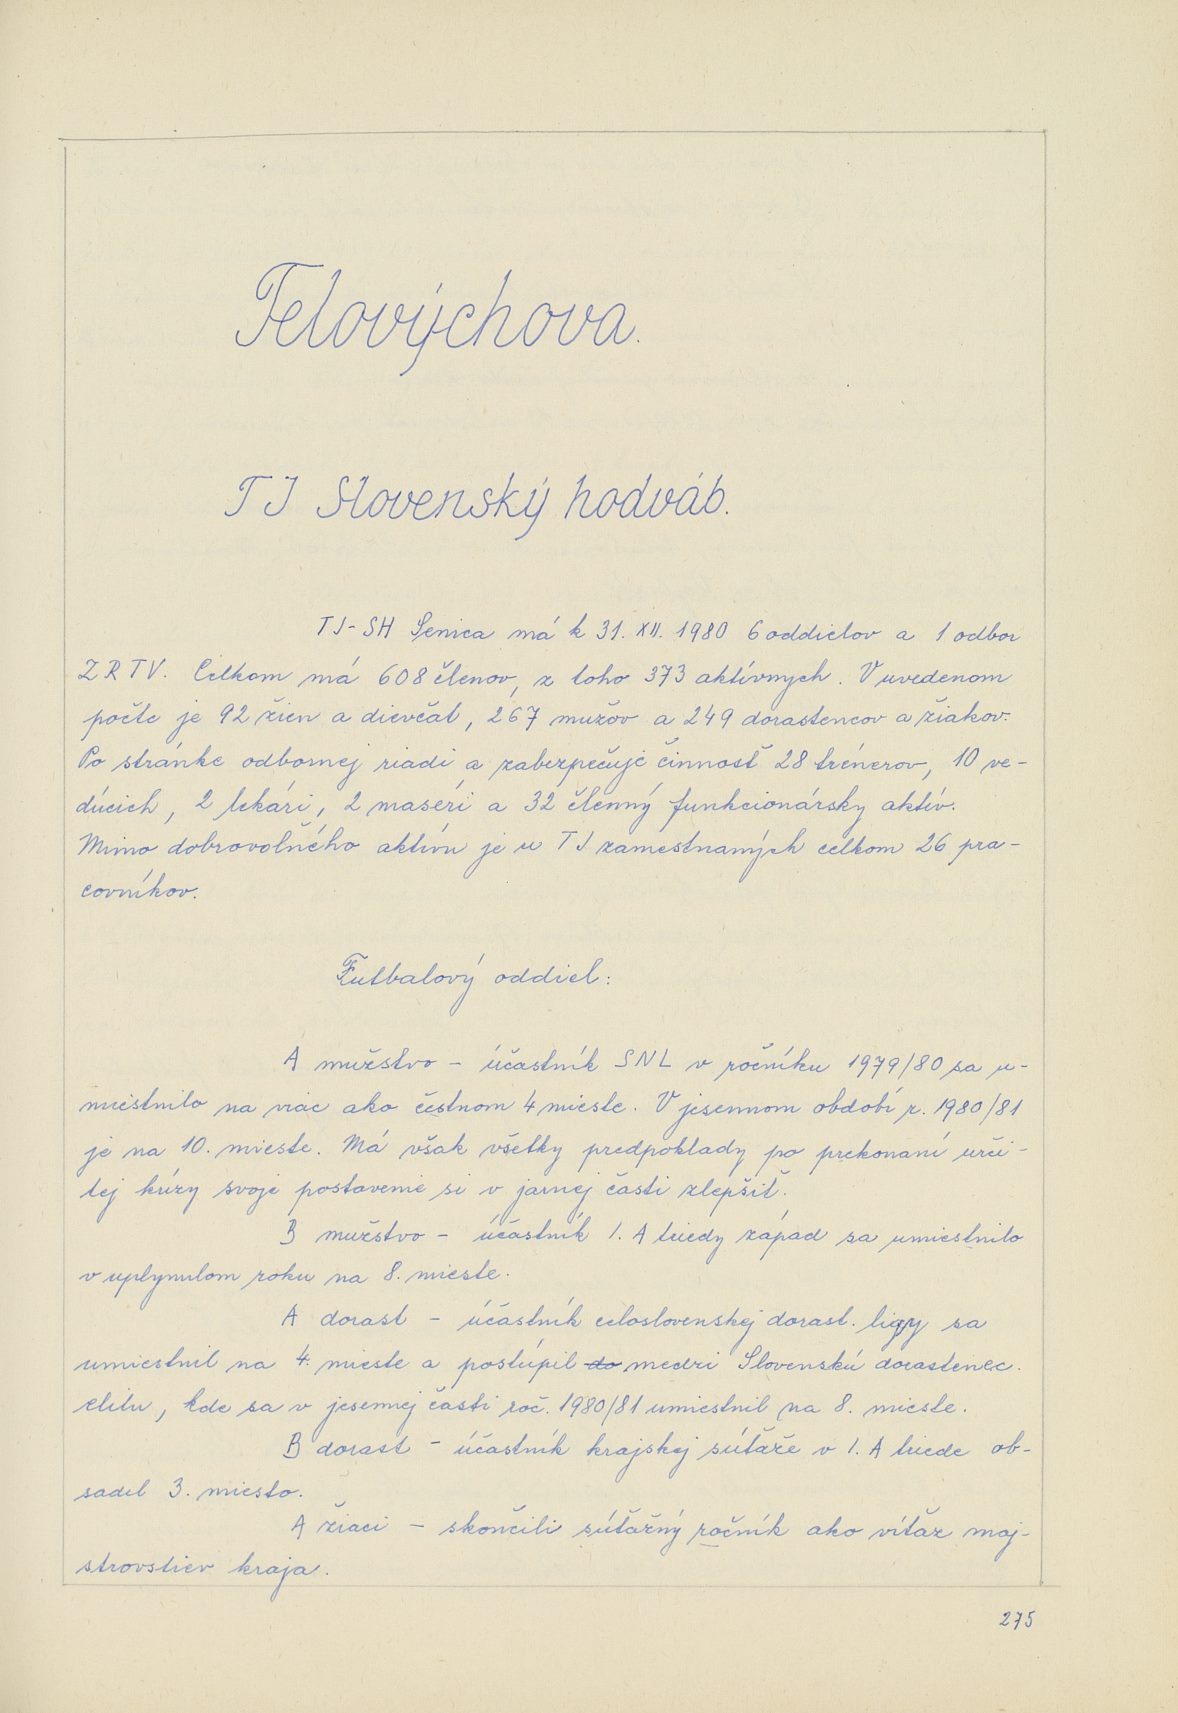 Telovýchova.
TJ Slovenský hodváb.
TJ-SH Senica má k 31. XII. 1980 6 oddielov a 1 odbor
ZRTV. Celkom má 608 členov, z toho 373 aktívnych. V uvedenom
počte je 92 žien a dievčat, 267 mužov a 249 dorastencov a žiakov.
Po stránke odbornej riadi a zabezpečuje činnosť 28 trénerov, 10 ve-
dúcich, 2 lekári, 2 maséri a 32 členný funkcionársky aktív.
Mimo dobrovoľného aktívu je u TJ zamestnaných celkom 26 pra-
covníkov.
Futbalový oddiel:
A mužstvo - účastník SNL v ročníku 1979/80 sa u-
miestnilo na viac ako čestnom 4 mieste. V jesennom období r. 1980/81
je na 10. mieste. Má však všetky predpoklady po prekonaní urči-
tej krízy svoje postavenie si v jarnej časti zlepšiť.
B mužstvo - účastník 1. A triedy západ sa umiestnilo
v uplynulom roku na 8. mieste.
A dorast - účastník celoslovenskej dorast. ligy sa
umiestnil na 4. mieste a postúpil do medzi Slovenskú dorastenec.
elitu, kde sa v jesennej časti roč. 1980/81 umiestnil na 8. mieste.
B dorast - účastník krajskej súťaže v 1. A triede ob-
sadil 3. miesto.
A žiaci - skončili súťažný ročník ako víťaz maj-
strovstiev kraja.
275